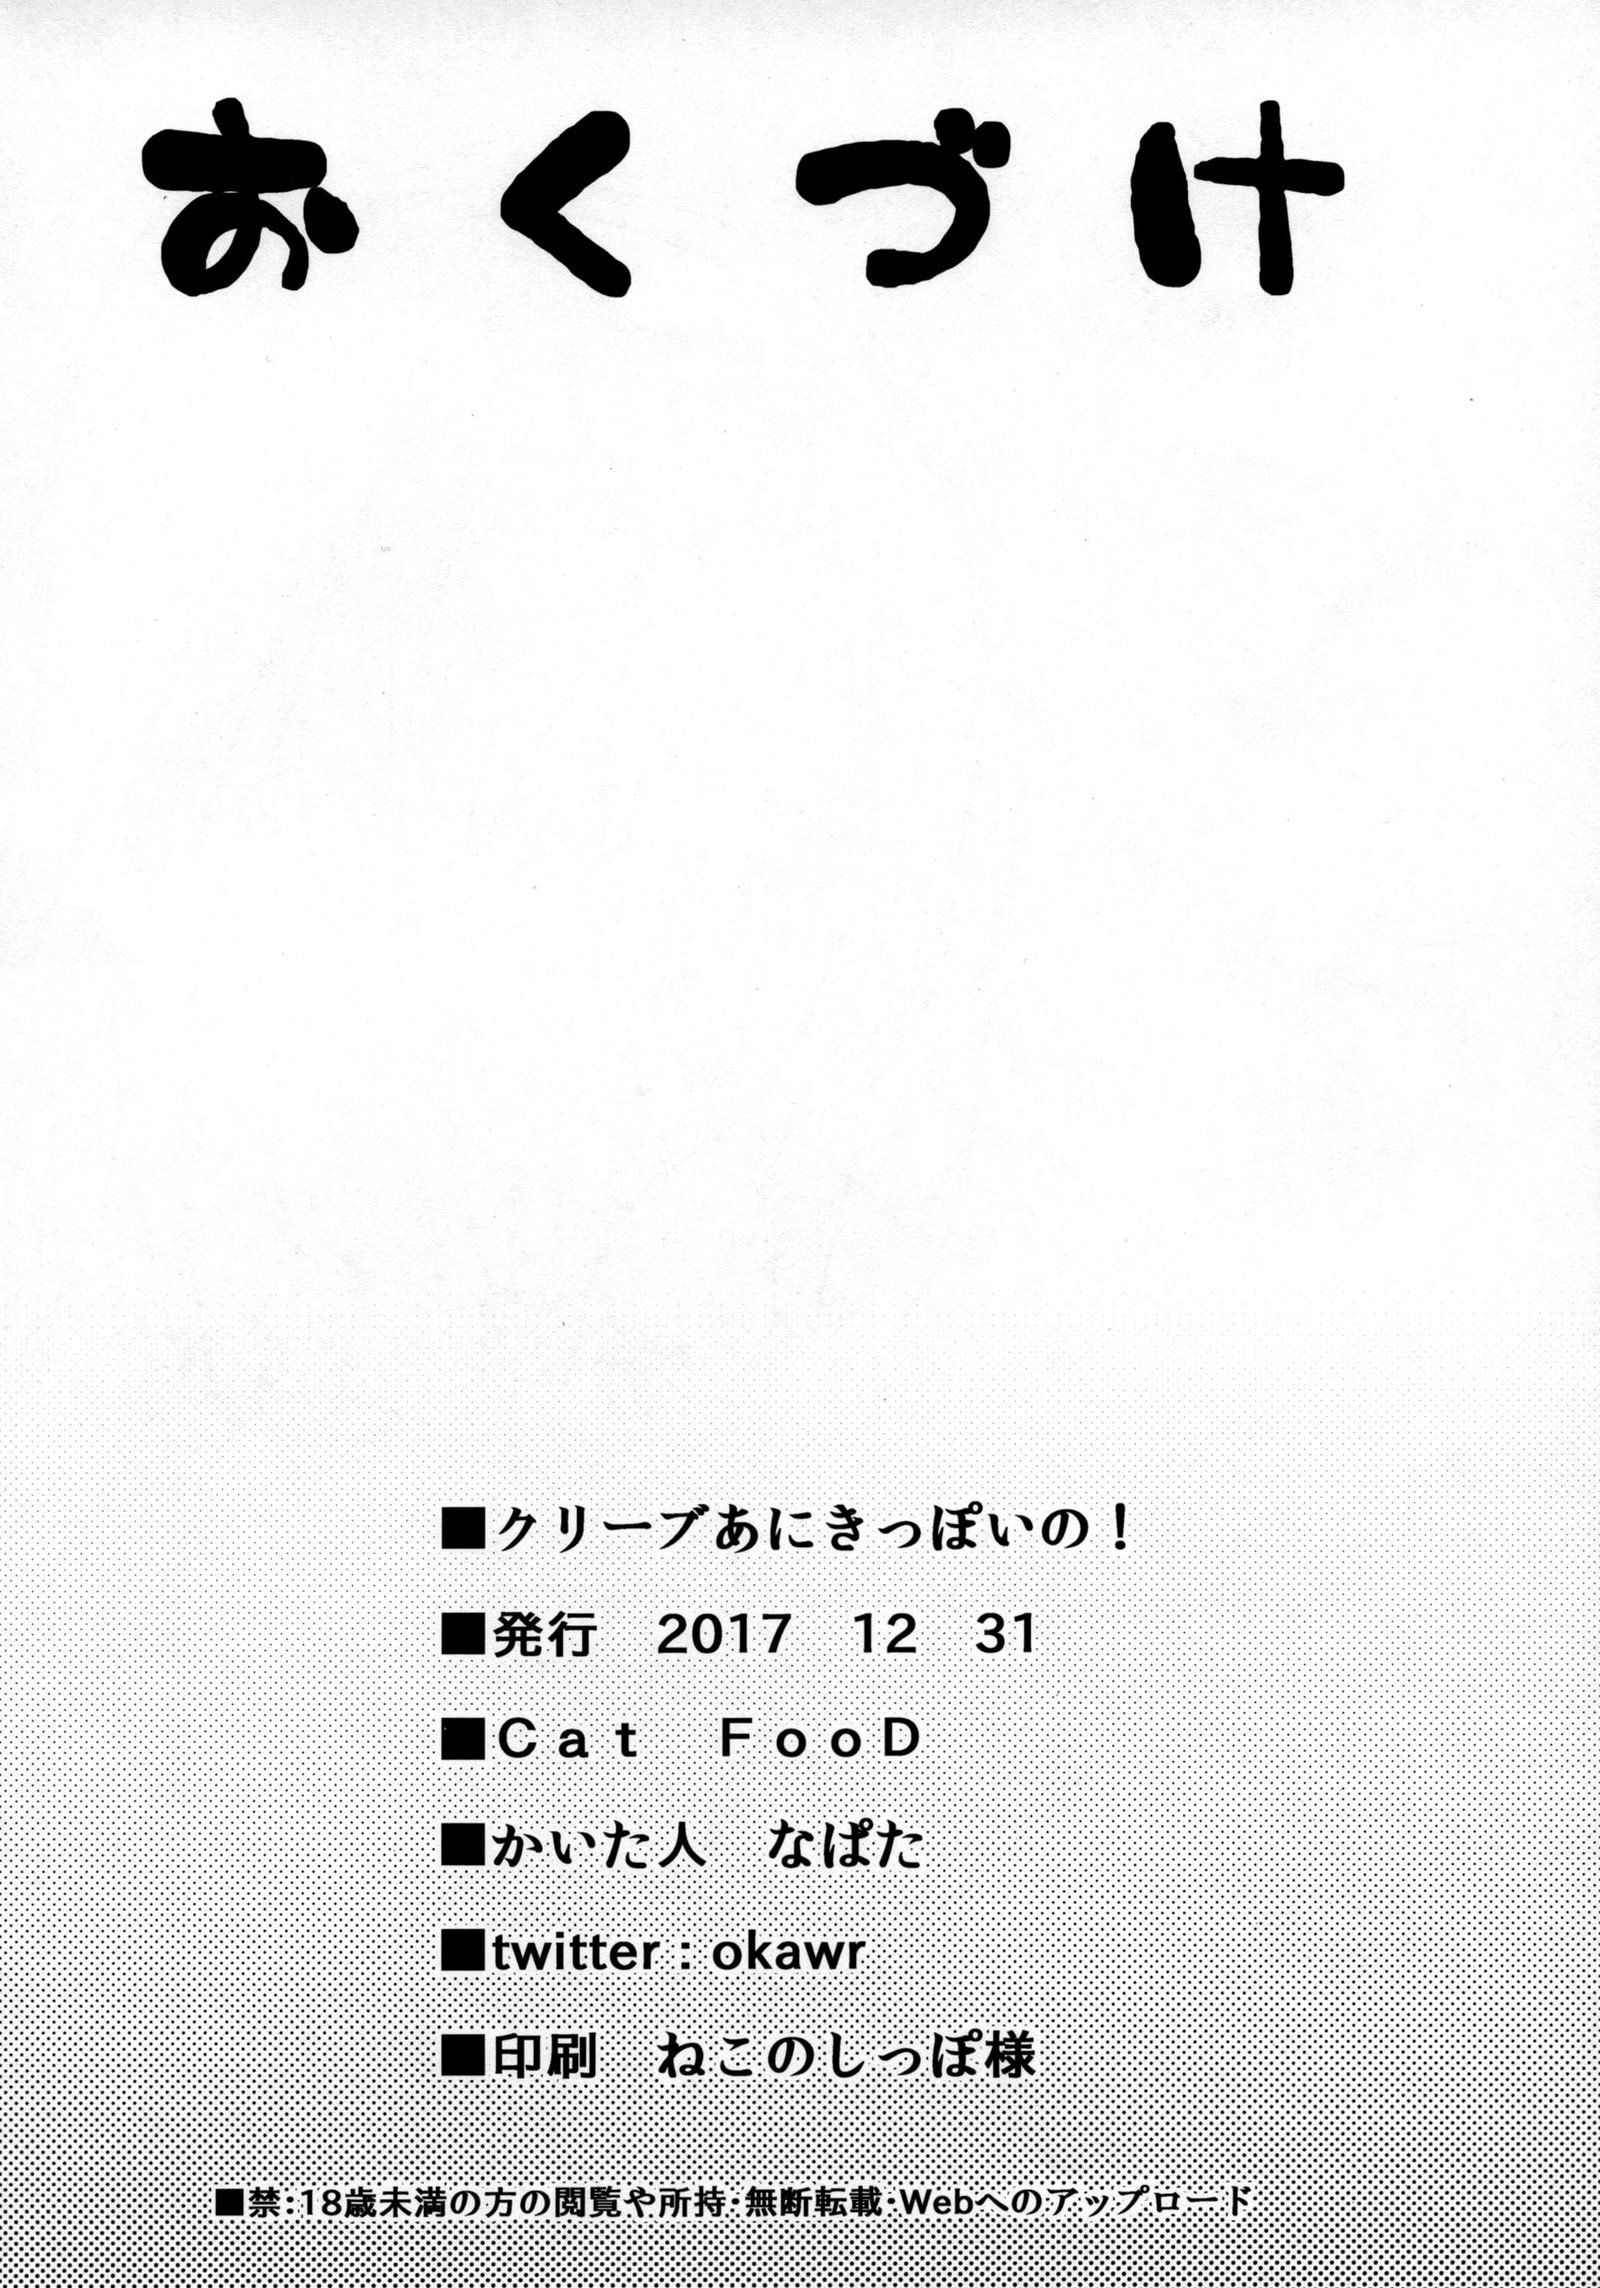 おくづけ
■クリーブあにきっぽいの！
■発行　2017　12　31
■Ｃａｔ　ＦｏｏＤ
■かいた人　なぱた
■twitter : okawr
■印刷　ねこのしっぽ様
■禁:18歳未満の方の閲覧や所持･無断転載･Webへのアップロード